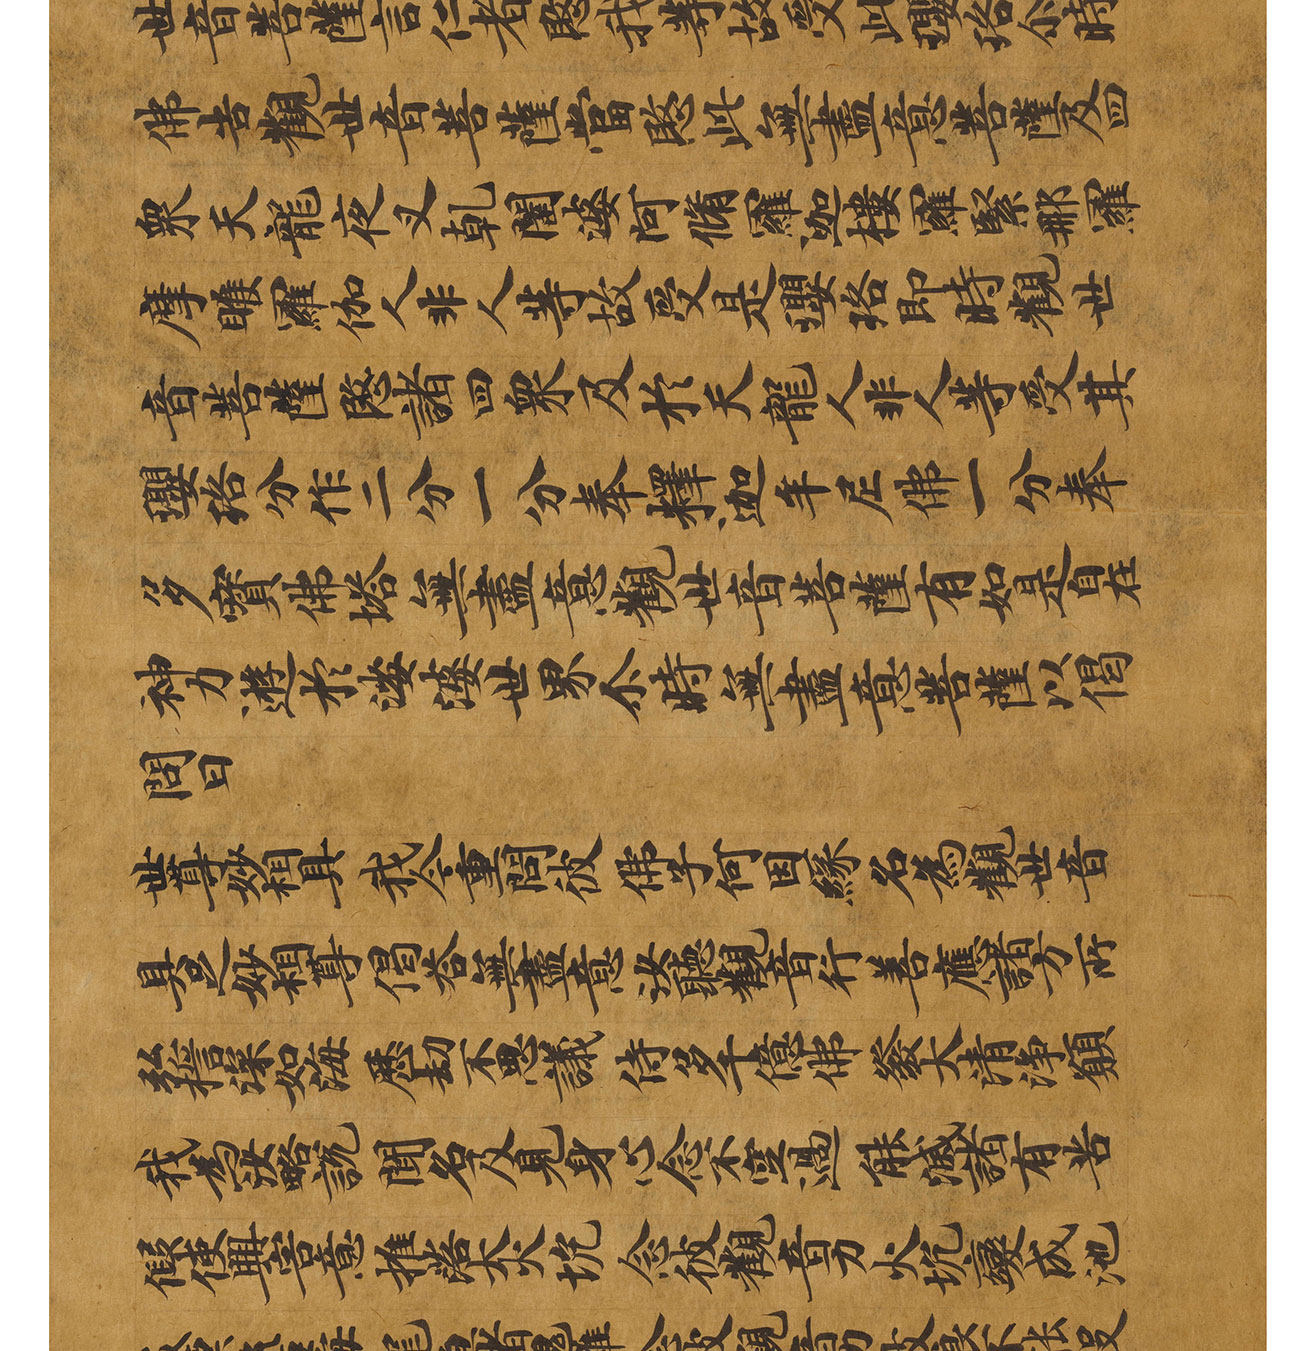 世音菩薩言仁者愍我等故受此瓔珞尒時
佛告觀世音菩薩當愍此無盡意菩薩及四
衆天龍夜叉乾闥婆阿脩羅迦樓羅緊那羅
摩睺羅伽人非人等故受是瓔珞即時觀世
音菩薩愍諸四衆及扵天龍人非人等受其
瓔珞分作二分一分奉釋迦牟尼佛一分奉
多寶佛塔無盡意觀世音菩薩有如是自在
神力遊扵娑婆世界尒時無盡意菩薩以偈
問曰
世尊妙相具 我今重問彼 佛子何因緣 名為觀世音
具足妙相尊 偈答無盡意 汝聽觀音行 善應諸方所
弘誓深如海 歷劫不思議 侍多千億佛 發大清淨願
我為汝略說 聞名及見身 心念不空過 能滅諸有苦
假使興害意 推落大火坑 念彼觀音力 火坑變成池